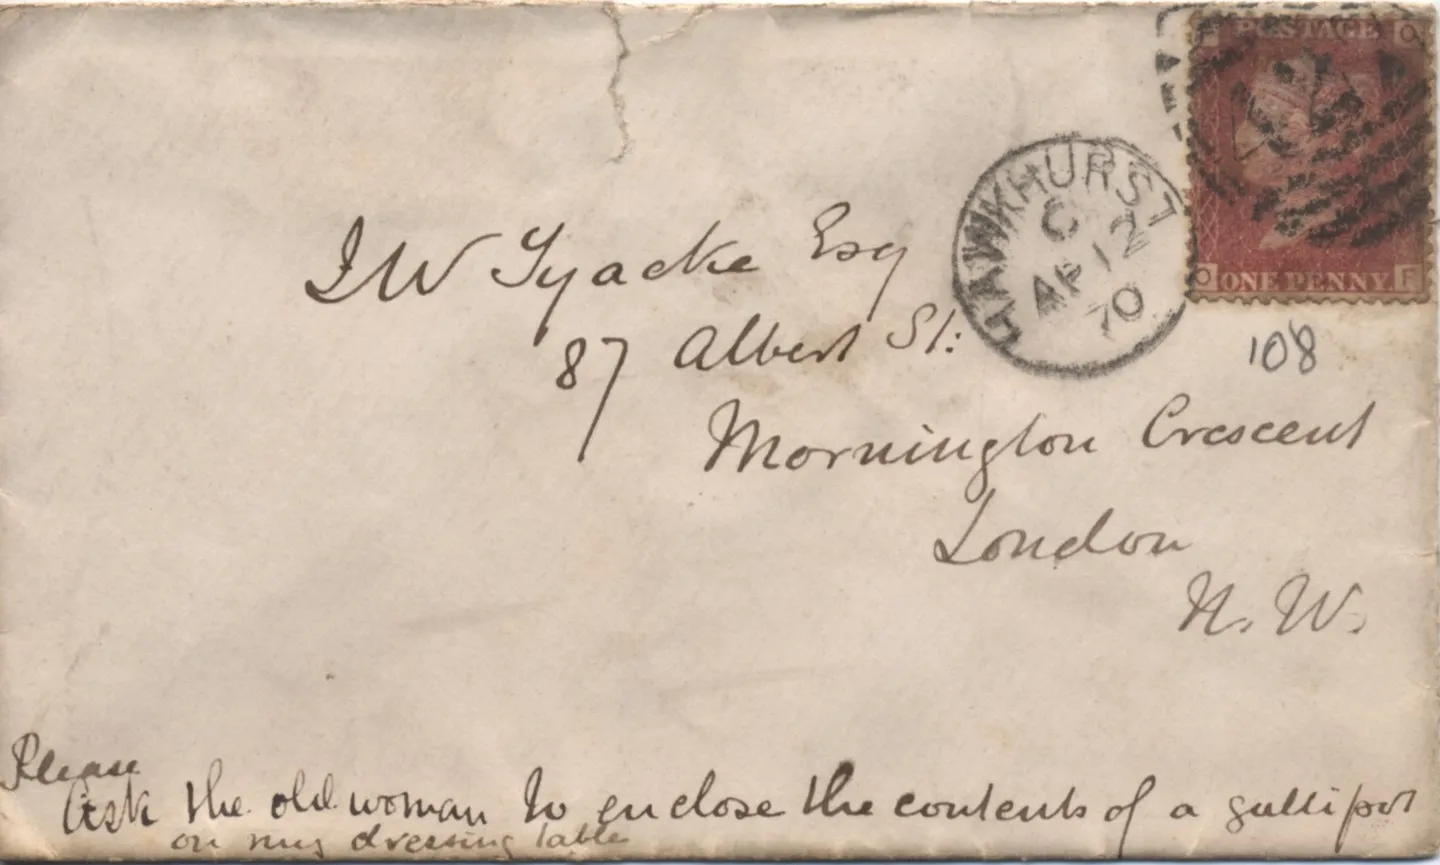 F POSTAGE O
HAWKHURST
C
AP 12
70
O ONE PENNY. F
108
J W Tyacke Esq
87 Albert St:
Mornington Crescent
London
N. W.
Please
Ask the old woman to enclose the contents of a gallipot
on my dressing table